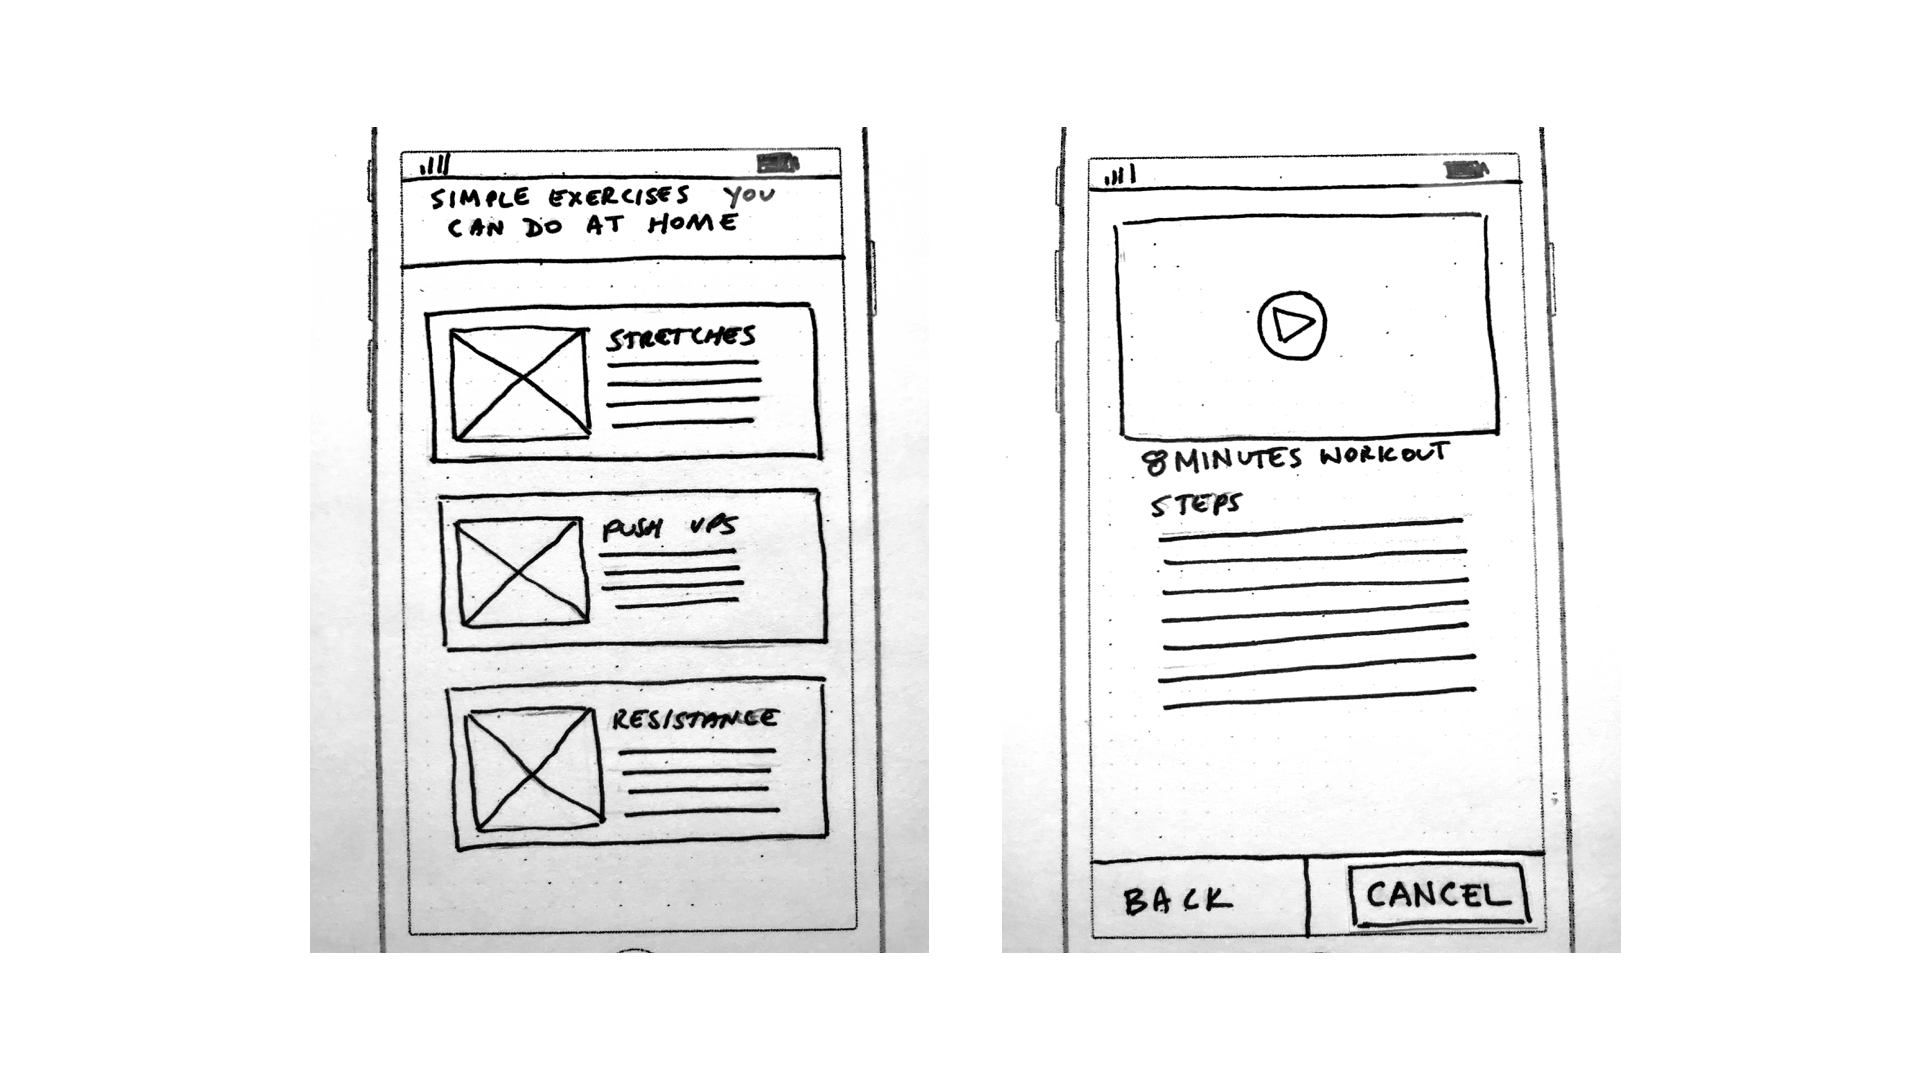 SIMPLE EXERCISES YOU
CAN DO AT HOME
STRETCHES
PUSH UPS
RESISTANCE
8 MINUTES WORKOUT
STEPS
BACK
CANCEL